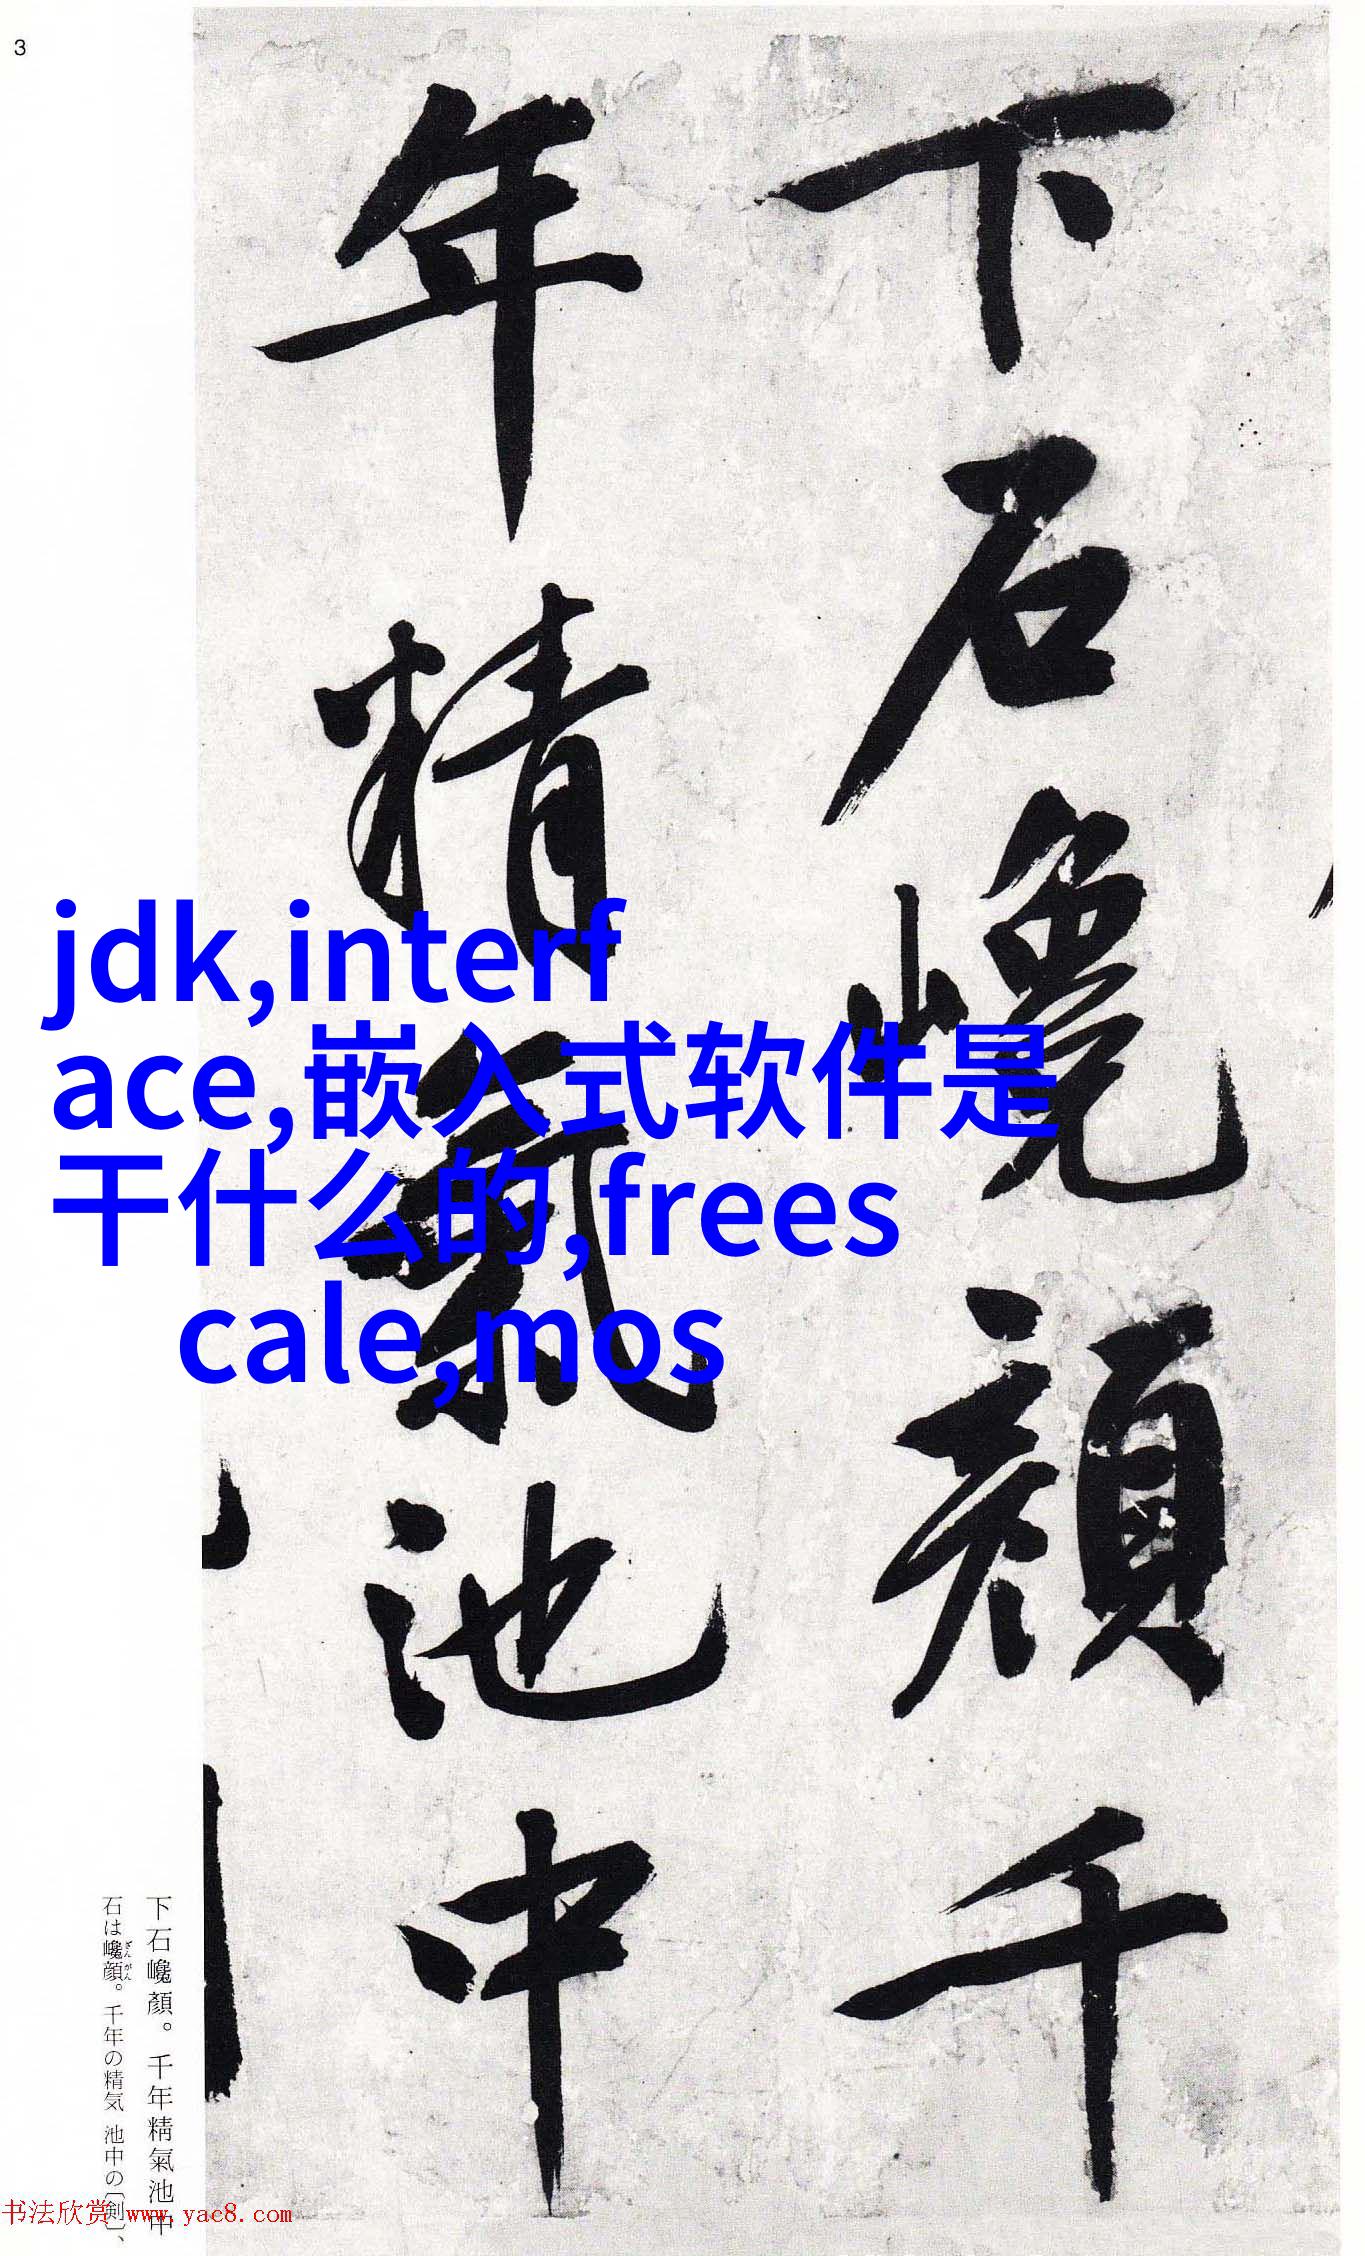 3
下石巉顔千
年精氣池中
jdk,interf
ace,嵌入式软件是
干什么的,frees
cale,mos
下石巉顏。千年精氣池中
石は巉顔。千年の精気 池中の〔剣〕、
ざん がん
书法欣赏 www.yac8.com